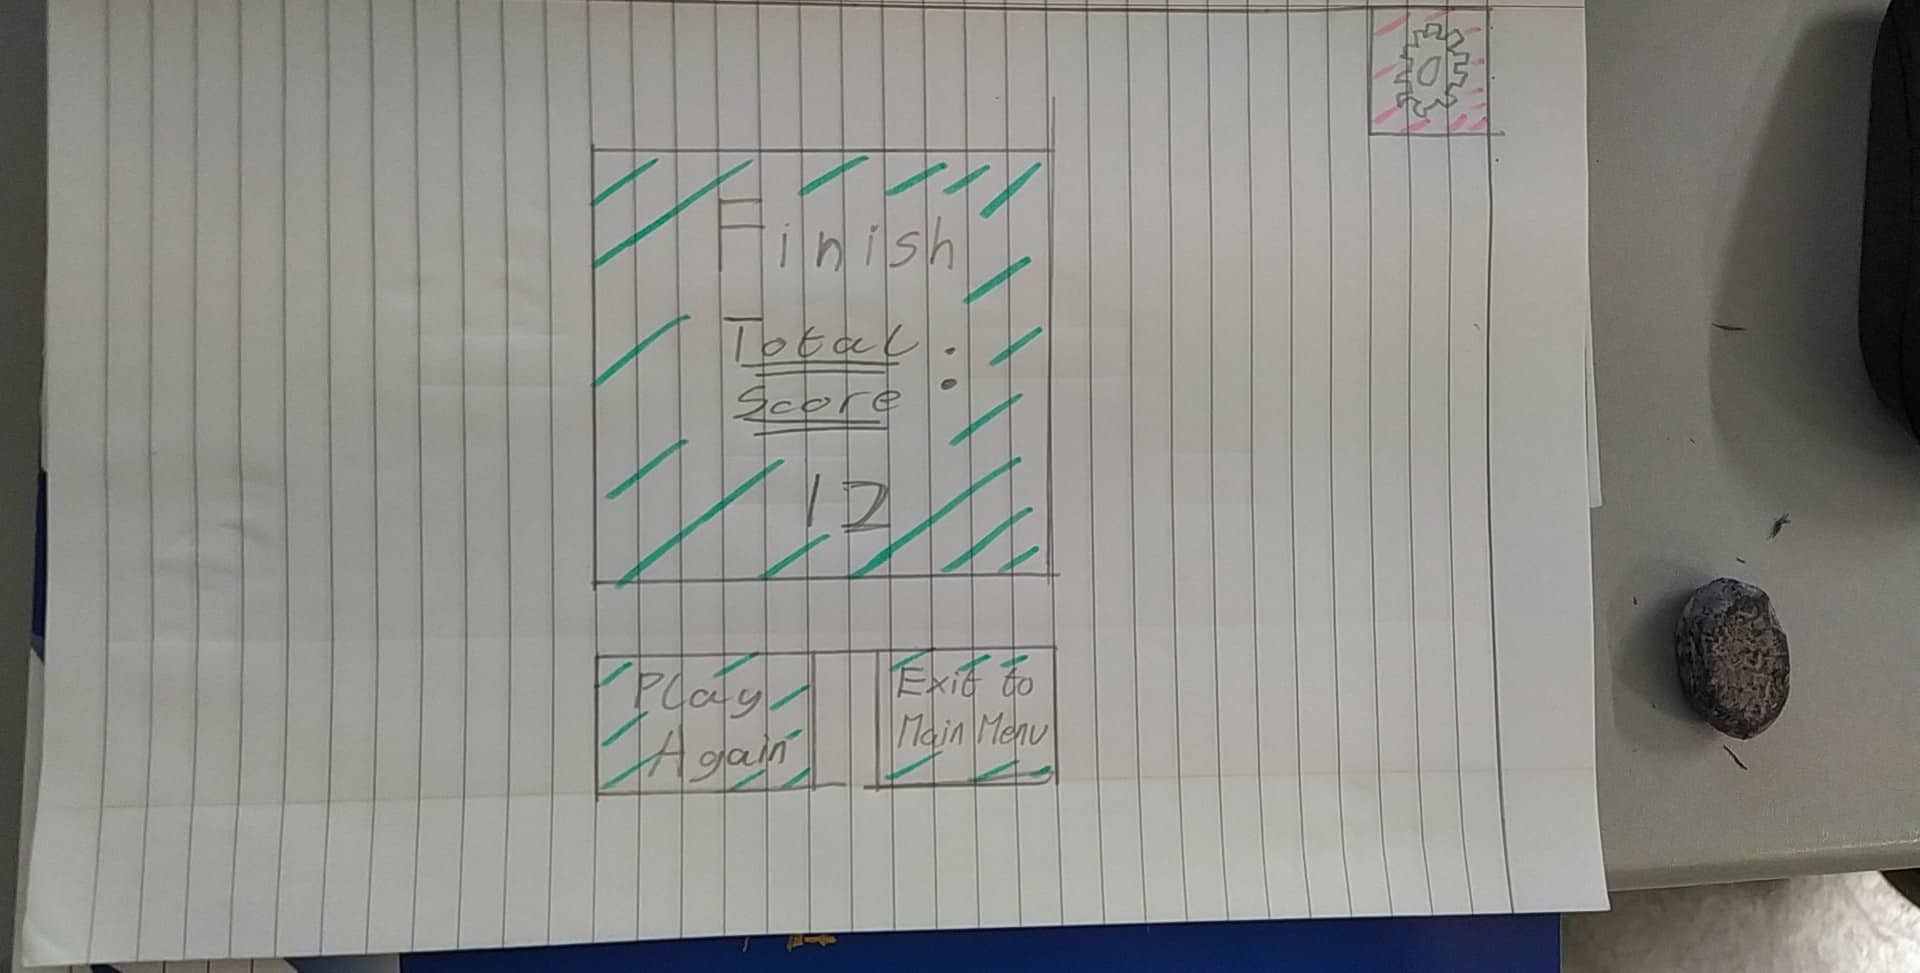 Finish
Total :
Score
12
Play
Again
Exit to
Main Menu